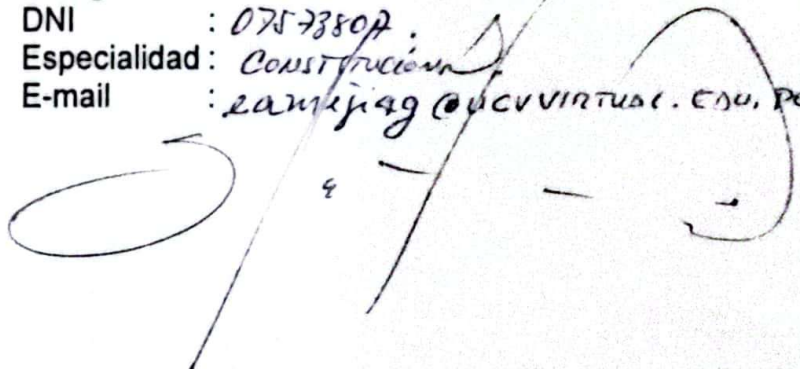 DNI : 07573807.
Especialidad : Constitucional
E-mail : eamejiag@ucvvirtual.edu.pe